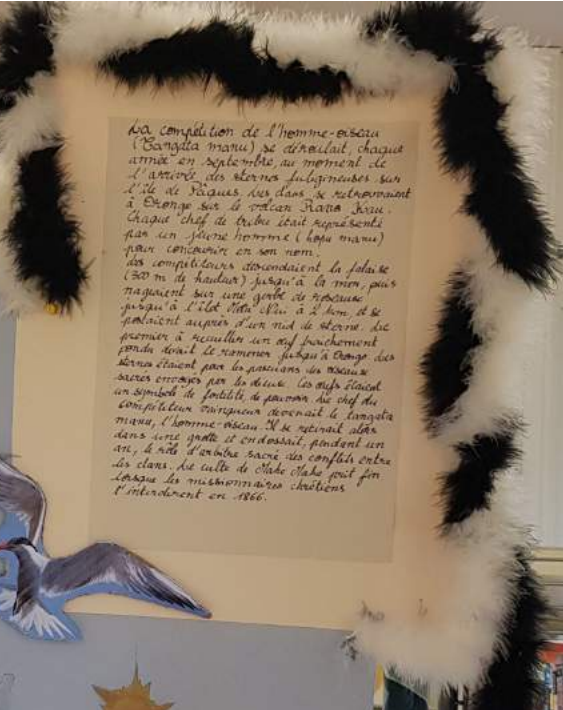 La compétition de l'homme-oiseau
(Tangata manu) se déroulait, chaque
année en septembre, au moment de
l'arrivée des sternes fuligineuses sur
l'île de Pâques. Les clans se retrouvaient
à Orongo sur le volcan Rano Kau.
Chaque chef de tribu était représenté
par un jeune homme (hopu manu)
pour concourir en son nom.
Les compétiteurs descendaient la falaise
(300 m de hauteur) jusqu'à la mer, puis
nageaient sur une gerbe de roseaux
jusqu'à l'îlot Motu Nui à 2 km, et se
postaient auprès d'un nid de sterne. Le
premier à recueillir un œuf fraîchement
pondu devait le ramener jusqu'à Orongo. Les
sternes étaient pour les pascuans des oiseaux
sacrés envoyés par les dieux. Les œufs étaient
un symbole de fertilité, de pouvoir. Le chef du
compétiteur vainqueur devenait le tangata
manu, l'homme-oiseau. Il se retirait alors
dans une grotte et endossait, pendant un
an, le rôle d'arbitre sacré des conflits entre
les clans. Le culte de Make Make prit fin
lorsque les missionnaires chrétiens
l'interdirent en 1866.